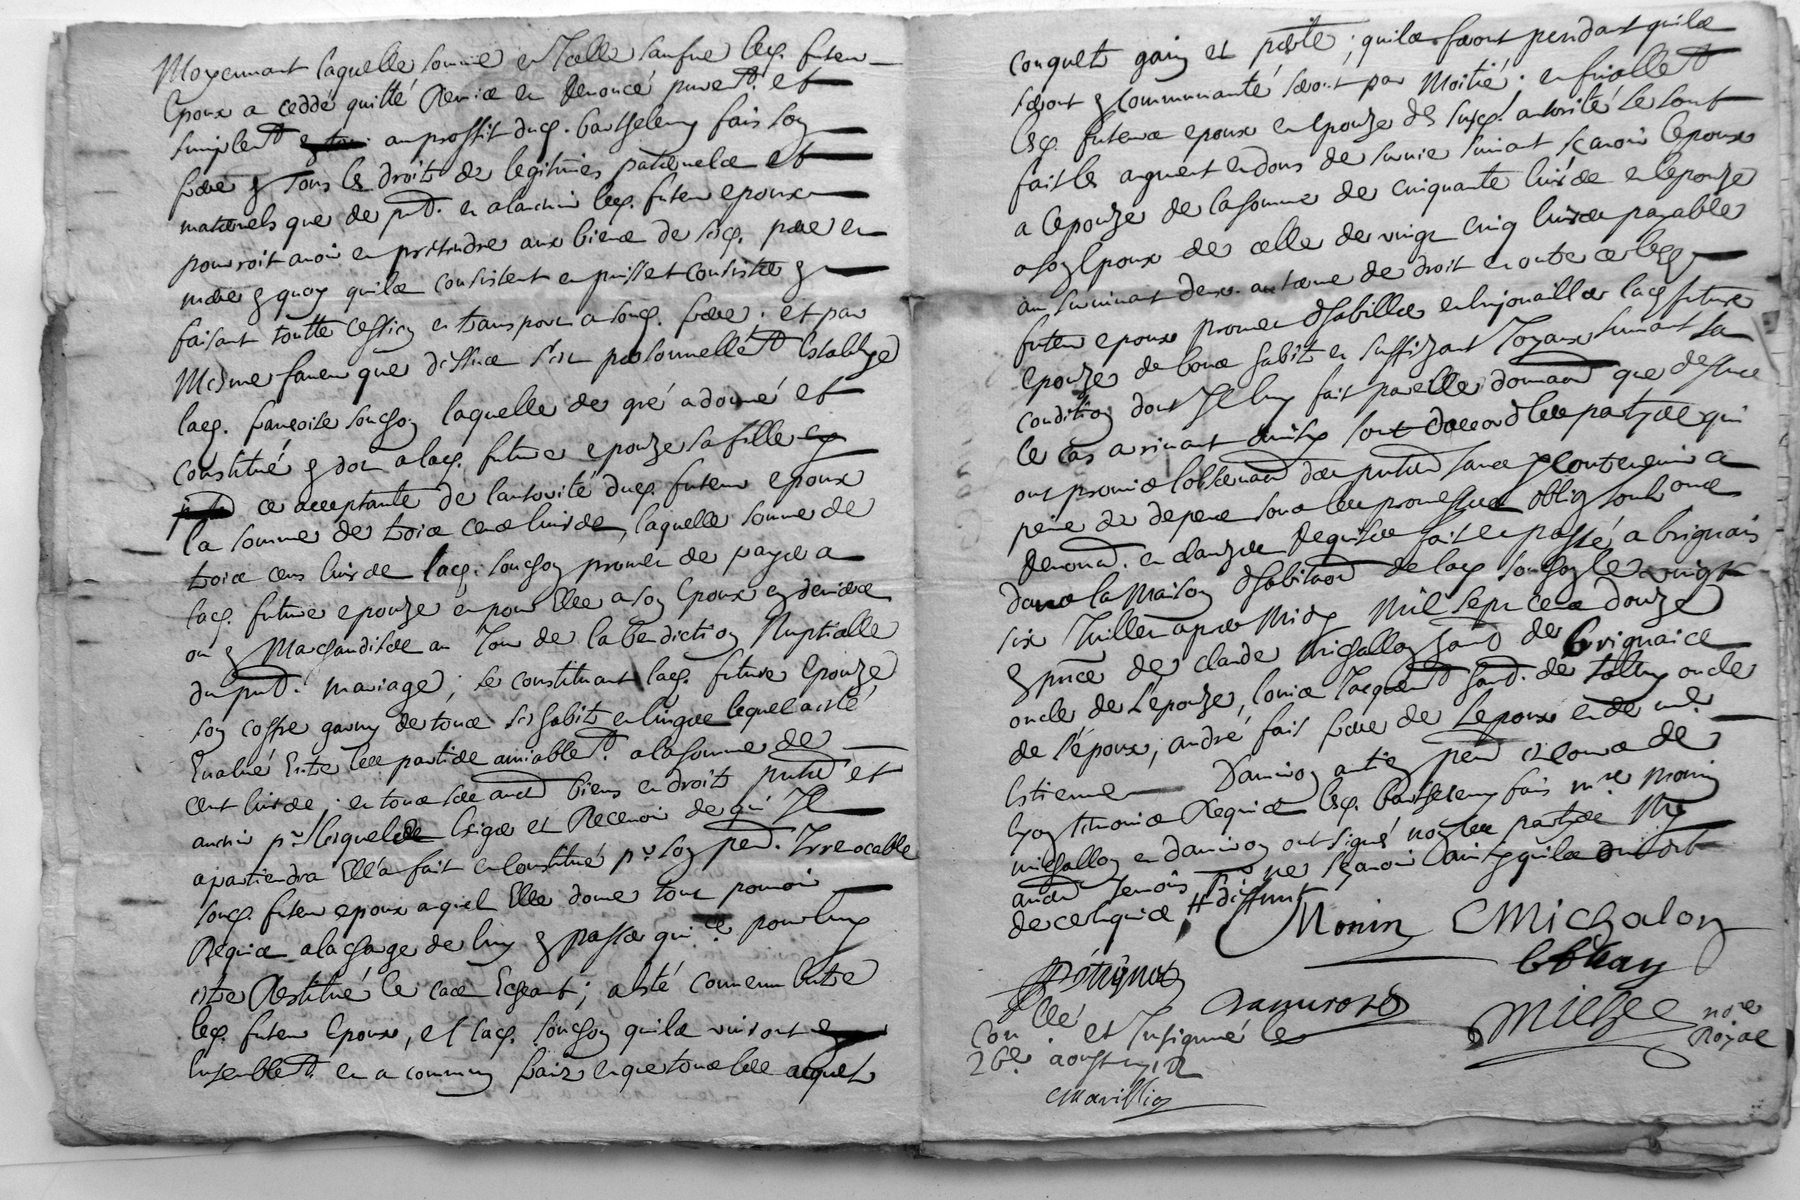 Moyennant laquelle somme en Icelle sausue led. futeur
Epoux a ceddé quitté Remis en Renoncé puremt. et
simplemt au proffit dud. barthelemy fais son
frere tous les droits de legitimes paternelle et
maternels que de pnt. en a ladvenir led. futeur epoux
pourroit avoir en pretendre aux biens de sesd. pere en
mere en quoy quils consistent en puissent consister
faisant toutte cession en transport a sond. frere; et par
Mesme faveur que dessus s'est personnellemt Establye
lad. françoise souchon laquelle de gré a donné et
constitué en dot a lad. future epouze sa fille
ce acceptante de l'autorité dud. futeur epoux
la somme de trois cens livres, laquelle somme de
trois cens livres lad. souchon promet de payer a
lad. future epouze en pour Elle a son Epoux en deniers
ou en Marchandises au Jour de la benediction Nuptialle
du pnt. mariage; se constituant lad. future Epouze
son coffre garny de tous ses habits en linges lequel a esté
Evalué Entre les parties amiablemt. a la somme de
cent livres; en tous ses autres biens en droits pnts et
advenir pr. lesquels Exiger et Recevoir de qui Il
apartiendra Elle a fait en constitué pr. son pr. Irrevocable
sond. futeur epoux auquel Elle donne tout pouvoir
Requis a la charge de luy en passer quittce pour luy
estre Restitué le cas Echeant; a esté convenu Entre
led. futeur Epoux, et lad. souchon quils vivront
Ensemblemt. en a commun frais en que tous les acquets
conquets gain et perte; quils feront pendant quils
seront en communauté seront par Moitié. en finallemt
lesd. futeurs epoux en Epouze de lad. autorité se sont
fait les augment en dons de survie suivant sçavoir l'epoux
a l'epouze de la somme de cinquante livres en l'epouze
a son Epoux de celle de vingt cinq livres payable
au survivant deux. en outre ce led.
futeur epoux promet d'habiller en Enjoailler lad. future
Epouze de bons habits en suffizant Joyaux suivant sa
condition dont Il luy fait pareille donation que dessus
le cas arrivant ainsy sont d'accord les parties qui
ont promis l'observation des presentes
peine de depens sous les promesses oblig
Renond. en clauzes Requises fait en passé a brignais
dans la maison d'habitaon de lad. souchon le vingt
six Juillet apres Midy Mil sept cens douze
en pnce de claude Michallon de Brignais
oncle de L'epouze, louis Jacquemet de Tolluy oncle
de l'époux, andré fait frere de L'epoux en de me.
Estienne Damiron
lyon tesmoins Requis led. barthelemy fais mre. Monin
michallon en damiron ont signé non les parties Ny
autres temoins pr. ne sçavoir ainsy quils ont dit
de ce Requis
Monin CMichalon
Damiron
Collé. et Insignué le
26e aoust 1712
Cmarillion
Miege nore
Royal